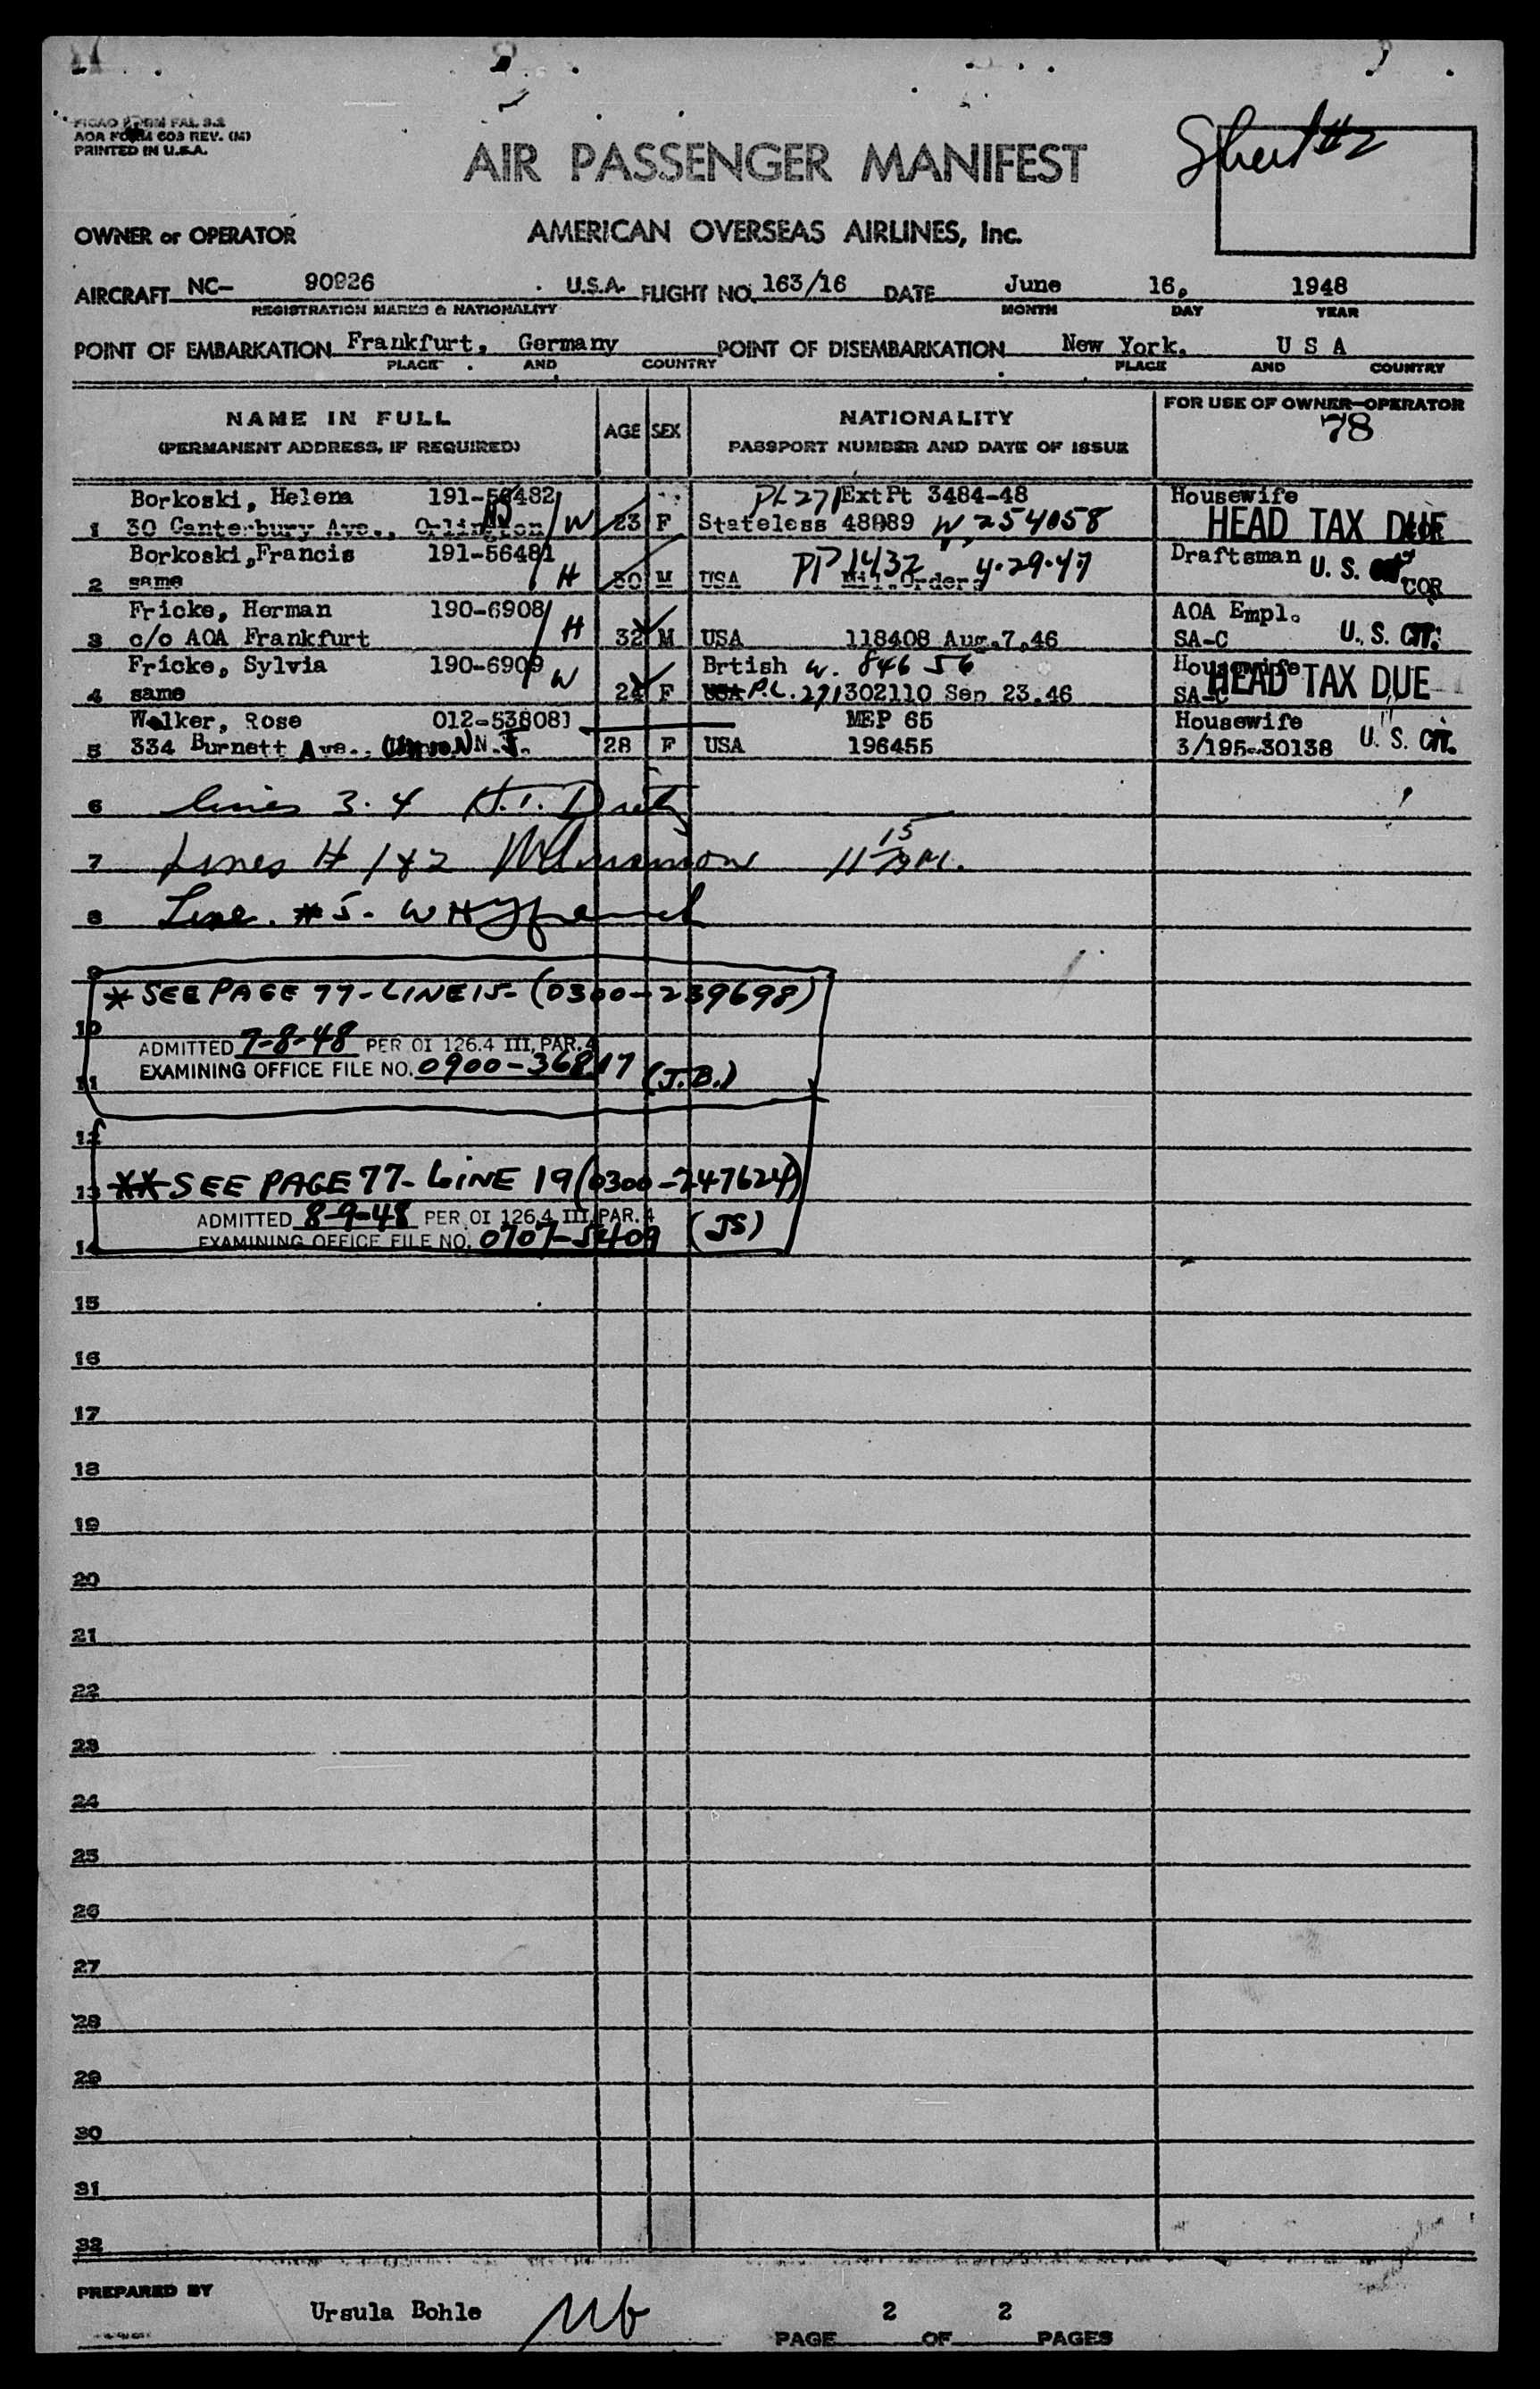 ICAO FORM FAL 3.2
AOA FORM 603 REV. (M)
PRINTED IN U.S.A.
Sheet #2
AIR PASSENGER MANIFEST
OWNER or OPERATOR AMERICAN OVERSEAS AIRLINES, Inc.
AIRCRAFT NC- 90926 U.S.A. FLIGHT NO. 163/16 DATE June 16, 1948
REGISTRATION MARKS & NATIONALITY MONTH DAY YEAR
POINT OF EMBARKATION Frankfurt, Germany POINT OF DISEMBARKATION New York, U S A
PLACE AND COUNTRY PLACE AND COUNTRY
NAME IN FULL AGE SEX NATIONALITY FOR USE OF OWNER-OPERATOR
(PERMANENT ADDRESS, IF REQUIRED) PASSPORT NUMBER AND DATE OF ISSUE 78
Borkoski, Helena 191-56482 PL271 ExtPt 3484-48 Housewife
1 30 Canterbury Ave., Orlington NJ W 23 F Stateless 48989 W 254058 HEAD TAX DUE
Borkoski,Francis 191-56481 PP 1432 4.29.47 Draftsman U. S.
2 same H 30 M USA Mil.Order COR
Fricke, Herman 190-6908 AOA Empl.
3 c/o AOA Frankfurt H 32 M USA 118408 Aug.7,46 SA-C U. S. CIT.
Fricke, Sylvia 190-6909 Brtish W. 84656 Housewife
4 same W 24 F USA P.L. 271 302110 Sep 23.46 SA-C HEAD TAX DUE
Walker, Rose 012-538081 MEP 65 Housewife
5 334 Burnett Ave., N.J. 28 F USA 196455 3/195-30138 U. S. CIT.
6 Lines 3. 4
7 Lines # 1 & 2 11 15
8 Line #5-
9
* SEE PAGE 77-LINE 15- (0300-239698)
10
ADMITTED 7-8-48 PER OI 126.4 III, PAR. 4
EXAMINING OFFICE FILE NO. 0900-36817 (J.B.)
11
12
13 ** SEE PAGE 77- LINE 19 (0300-247624)
ADMITTED 8-9-48 PER OI 126.4 III, PAR. 4 (JS)
14 EXAMINING OFFICE FILE NO. 0707-5409
15
16
17
18
19
20
21
22
23
24
25
26
27
28
29
30
31
32
PREPARED BY
Ursula Bohle Ub 2 2
PAGE OF PAGES